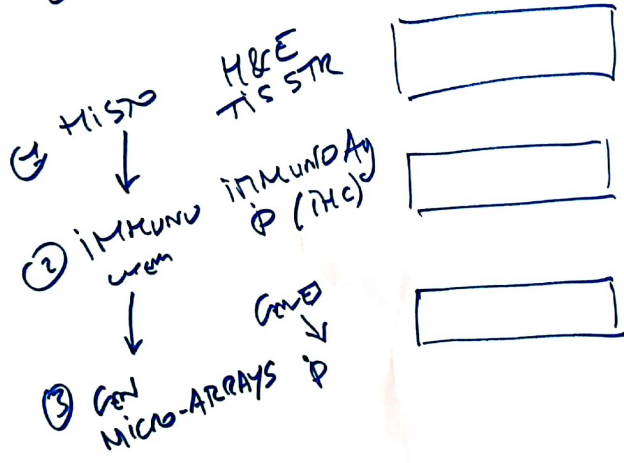 ① HISTO H&E
TIS STR
② IMMUNO IMMUNO Ag
P (IHC)
③ GEN
MICRO-ARRAYS P